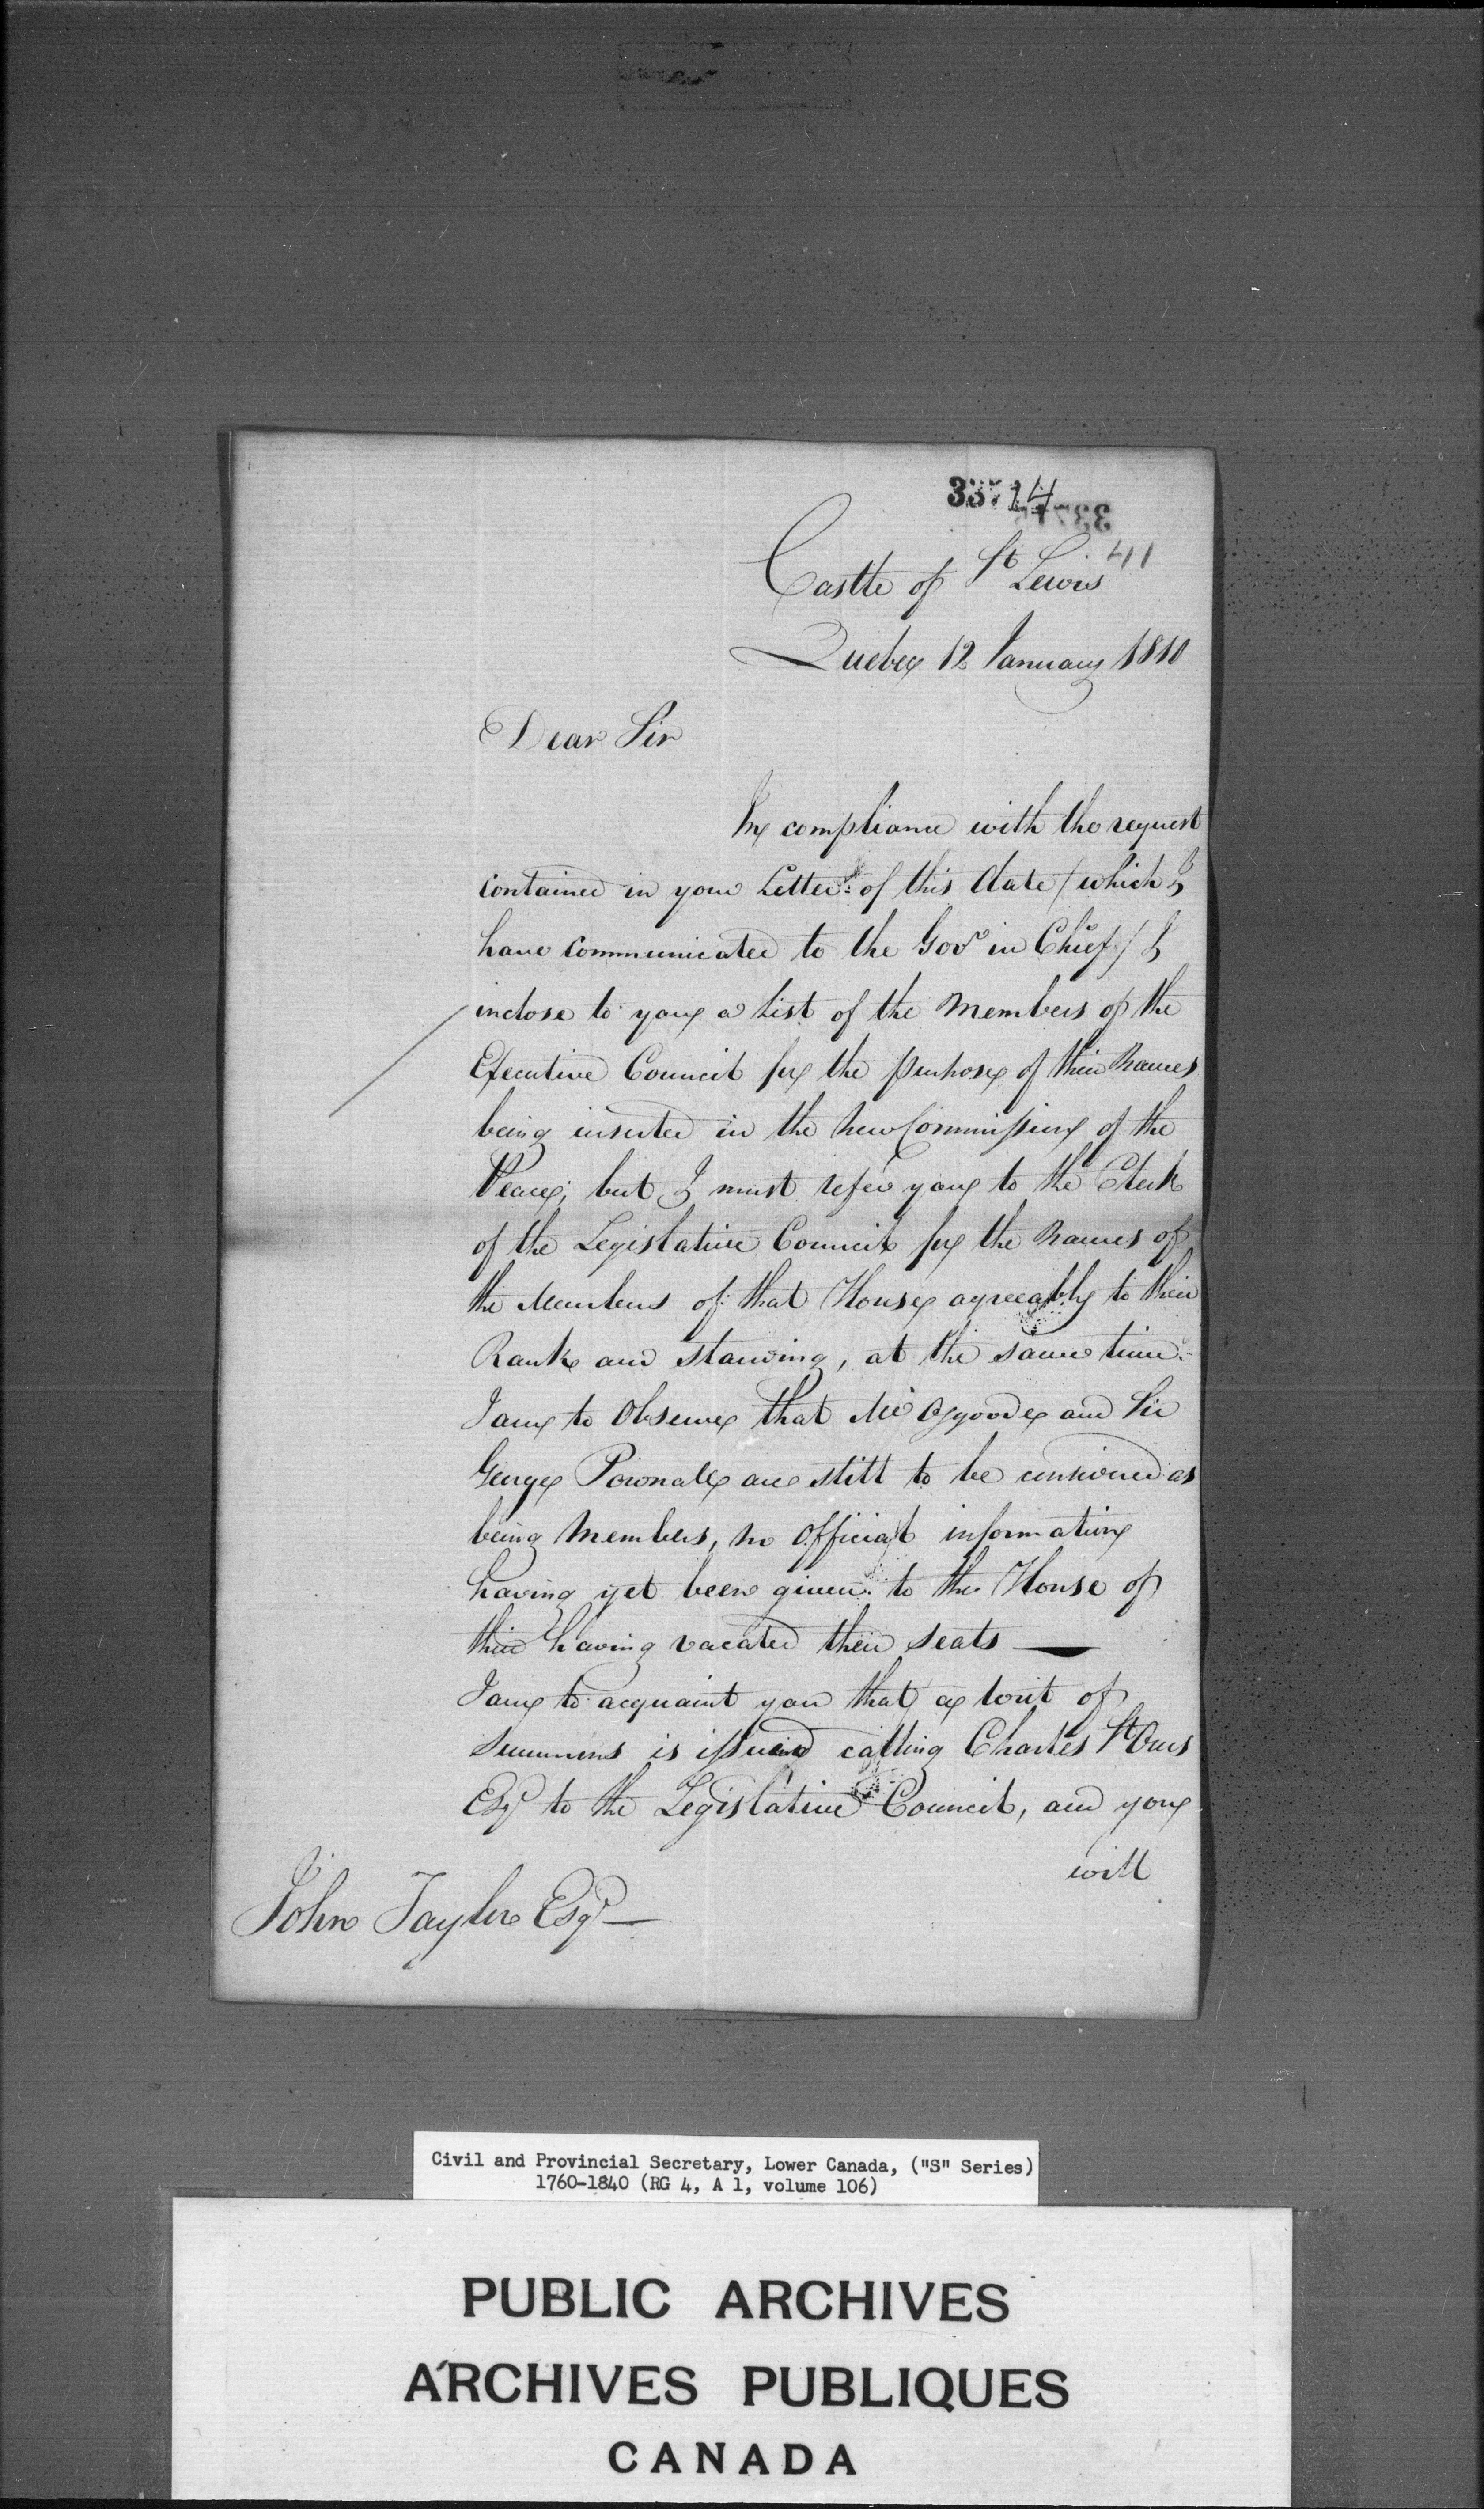 33714
41
Castle of St Lewis
Quebec 12 January 1810
Dear Sir
In compliance with the request
contained in your Letter of this date / which I
have communicated to the Govr in Chief / I
inclose to you a list of the Members of the
Executive Council for the purpose of their Names
being inserted in the new Commission of the
Peace; but I must refer you to the Clerk
of the Legislative Council for the Names of
the Members of that House agreeably to their
Rank and standing, at the same time
I am to observe that Mr Osgoode and Sir
George Pownall are still to be considered as
being Members, no official information
having yet been given to the House of
their having vacated their seats —
I am to acquaint you that a writ of
Summons is issued calling Charles St Ours
Esqr to the Legislative Council, and you
will
John Taylor Esqr —
Civil and Provincial Secretary, Lower Canada, ("S" Series)
1760-1840 (RG 4, A 1, volume 106)
PUBLIC ARCHIVES
ARCHIVES PUBLIQUES
CANADA